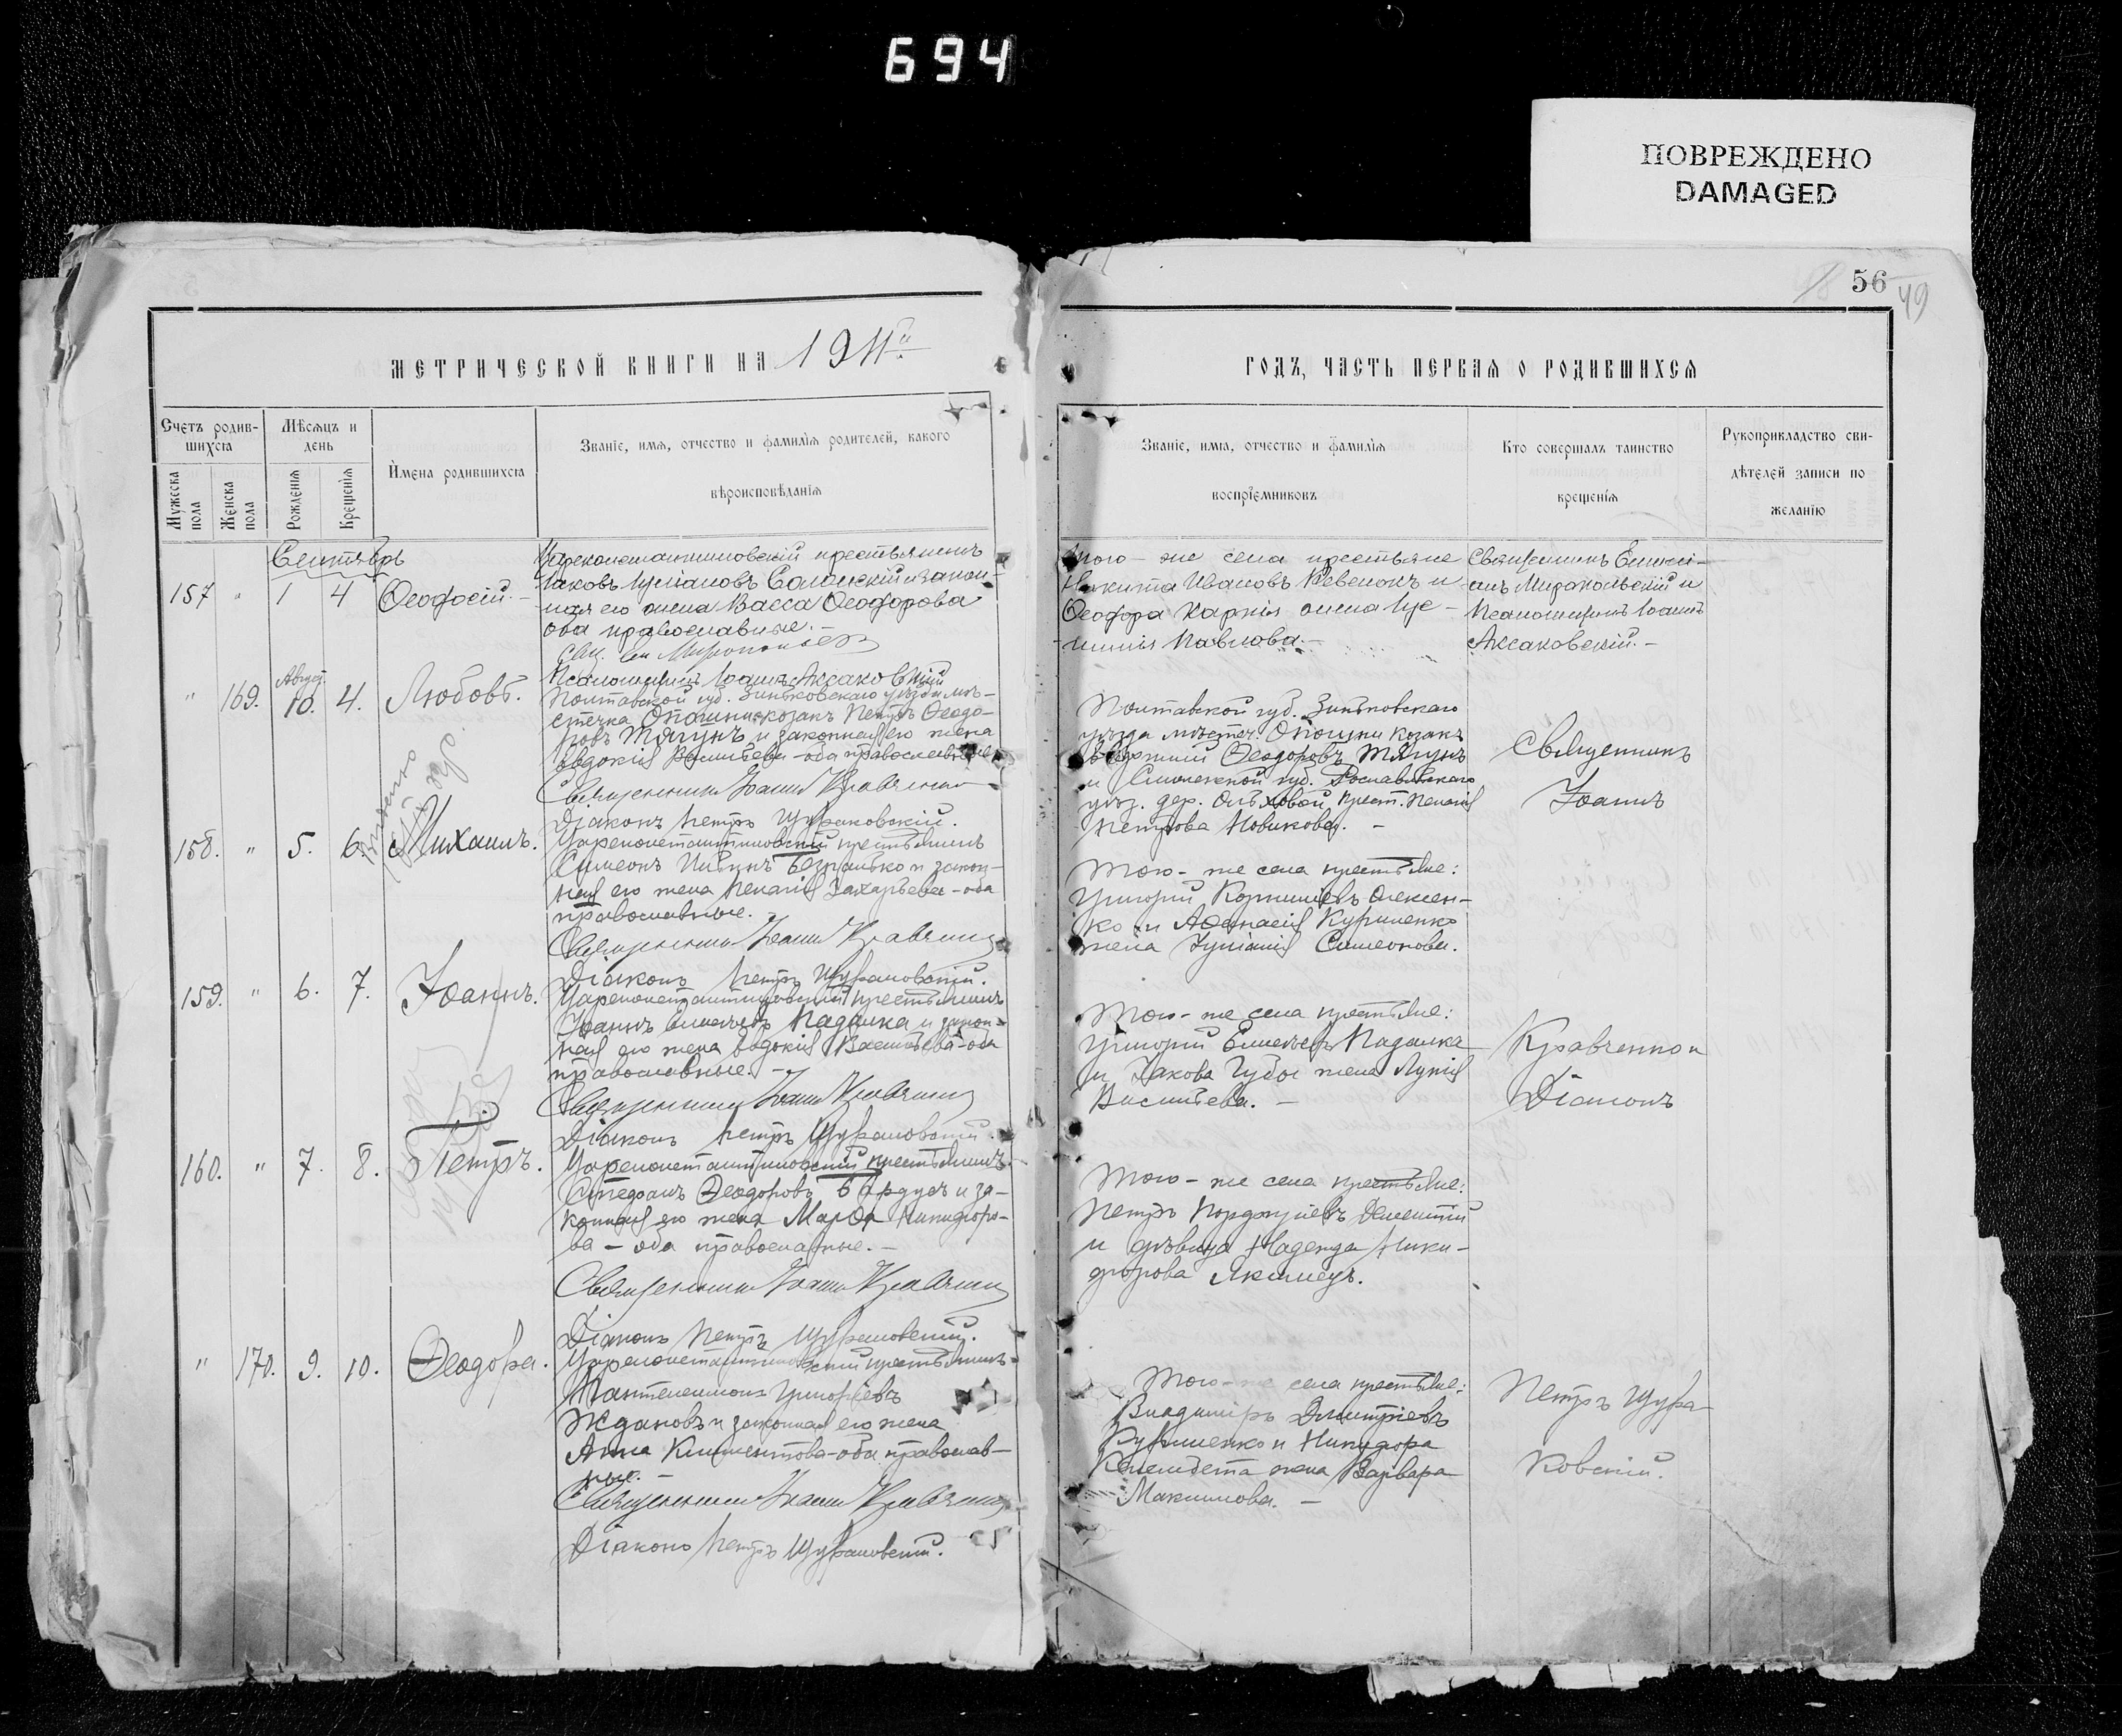 694
ПОВРЕЖДЕНО
DAMAGED
56
49
МЕТРИЧЕСКОЙ КНИГИ НА 1911й
ГОДЪ, ЧАСТЬ ПЕРВАЯ О РОДИВШИХСЯ
Счетъ родив-
шихся
Мужеска
пола
Женска
пола
Мѣсяцъ и
день
Рожденія
Крещенія
Имена родившихся
Званіе, имя, отчество и фамилія родителей, какого
вѣроисповѣданія
Званіе, имя, отчество и фамилія
воспріемниковъ
Кто совершалъ таинство
крещенія
Рукоприкладство сви-
дѣтелей записи по
желанію
Сентябрь
157 " 1 4 Ѳеодосій.-
Цареконстантиновскій крестьянинъ
Іаковъ и закон-
ная его жена Васса Ѳеодорова
оба православные.-
Того-же села крестьяне
Никита Ивановъ Ревенокъ и
Ѳеодора Карпія жена
Павлова.-
Священникъ
и
Псаломщикъ Іоаннъ
Аксаковскій.-
Псаломщикъ Іоаннъ Аксаковскій
" 169. Август. 10. 4. Любовь.
Полтавской губ. Зиньковскаго уѣзда мѣ-
стечка Опошни козакъ Петръ Ѳеодо-
ровъ Тягунъ и законная его жена
Евдокія Васильева - оба православные
Священникъ Іоаннъ Кравченко
Діаконъ Петръ Щураковскій.
Полтавской губ. Зиньковскаго
уѣзда мѣстеч. Опошни козакъ
Ѳеодоровъ Тягунъ
и Смоленской губ. Рославльскаго
уѣз. дер. Ольховой крест. Пелагія
Петрова Новикова. -
Священникъ
Іоаннъ
158. " 5. 6. Михаилъ.
Цареконстантиновскій крестьянинъ
Симеонъ и закон-
ная его жена Пелагія Захарьева - оба
православные.
Священникъ Іоаннъ Кравченко
Діаконъ Петръ Щураковскій.
Того-же села крестьяне:
Григорій Корниліевъ Олексен-
ко и Аѳанасія Куриленко
жена Іуліанія Симеонова.
159. " 6. 7. Іоаннъ.
Цареконстантиновскій крестьянинъ
Іоаннъ Емельевъ Падалка и закон-
ная его жена Евдокія Васильева - оба
православные. -
Священникъ Іоаннъ Кравченко
Діаконъ Петръ Щураковскій.
Того-же села крестьяне:
Григорій Емельевъ Падалка
и Іакова Губы жена Лукія
Васильева. -
Кравченко и
Діаконъ
160. " 7. 8. Петръ.
Цареконстантиновскій крестьянинъ
Стефанъ Ѳеодоровъ Бардусъ и за-
конная его жена Марѳа Никифоро-
ва - оба православные. -
Священникъ Іоаннъ Кравченко
Діаконъ Петръ Щураковскій.
Того-же села крестьяне:
Петръ
и дѣвица Надежда Ники-
форова Якимецъ.
" 170. 9. 10. Ѳеодора.
Цареконстантиновскій крестьянинъ
Пантелеимонъ Григоріевъ
Ждановъ и законная его жена
Анна Климентова - оба православ-
ные. -
Священникъ Іоаннъ Кравченко
Діаконъ Петръ Щураковскій.
Того-же села крестьяне:
Владиміръ Дмитріевъ
Куриленко и Никифора
жена Варвара
Максимова. -
Петръ Щура-
ковскій.